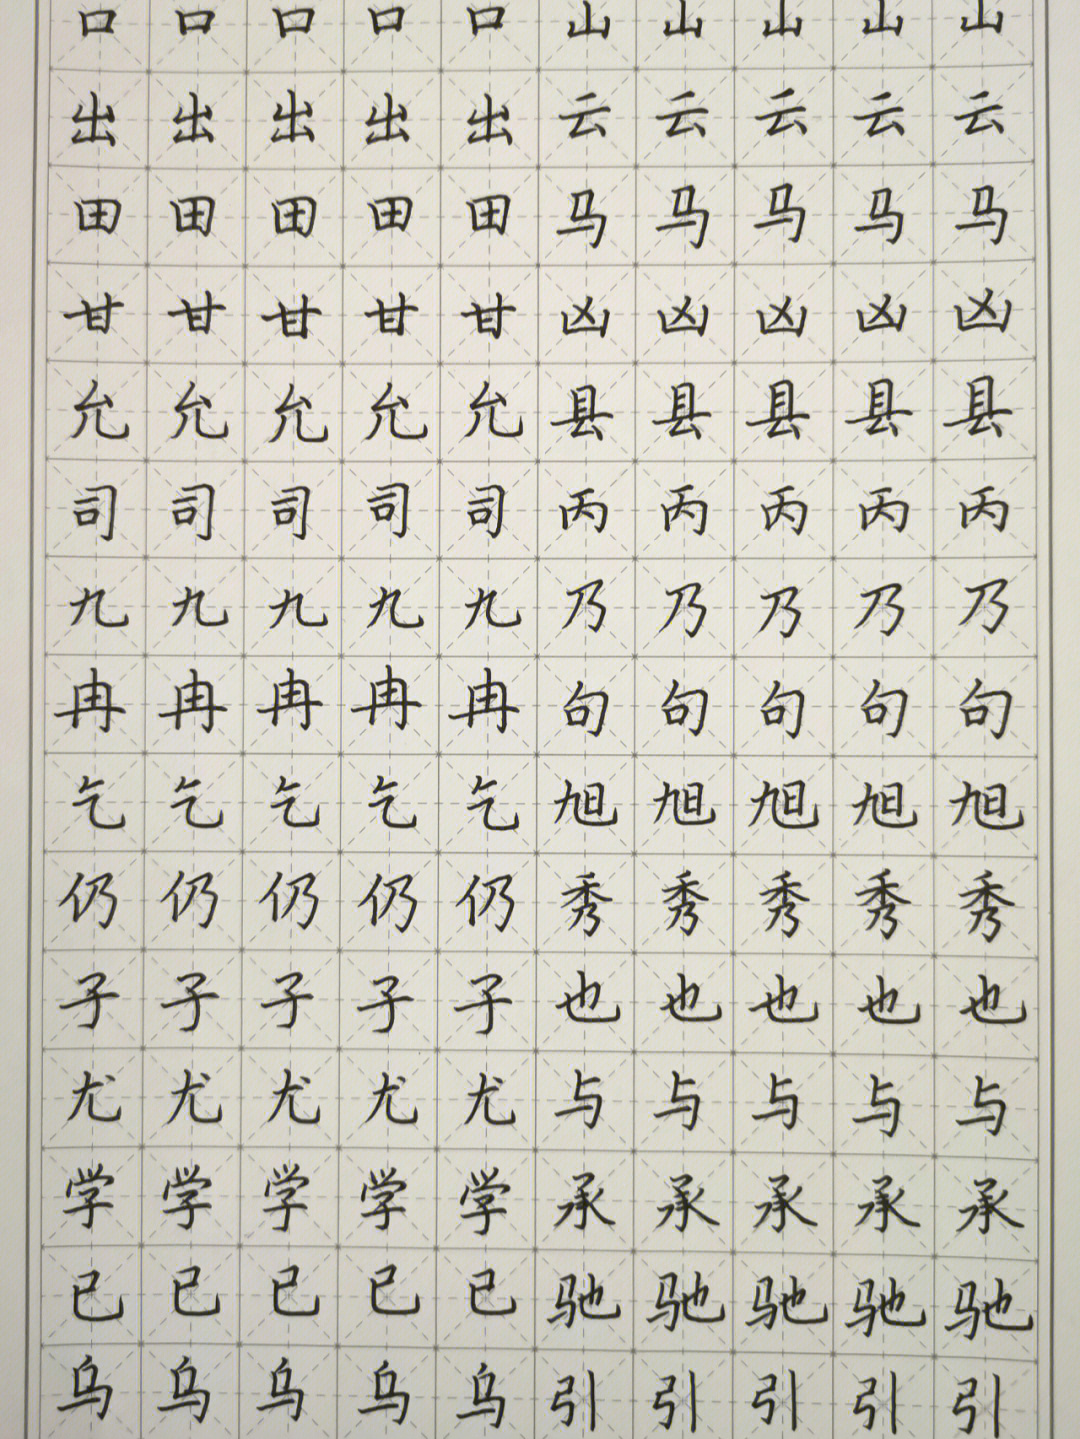 口口口口口山山山山山
出出出出出云云云云云
田田田田田马马马马马
甘甘甘甘甘凶凶凶凶凶
允允允允允县县县县县
司司司司司丙丙丙丙丙
九九九九九乃乃乃乃乃
冉冉冉冉冉句句句句句
乞乞乞乞乞旭旭旭旭旭
仍仍仍仍仍秀秀秀秀秀
子子子子子也也也也也
尤尤尤尤尤与与与与与
学学学学学承承承承承
已已已已已驰驰驰驰驰
乌乌乌乌乌引引引引引